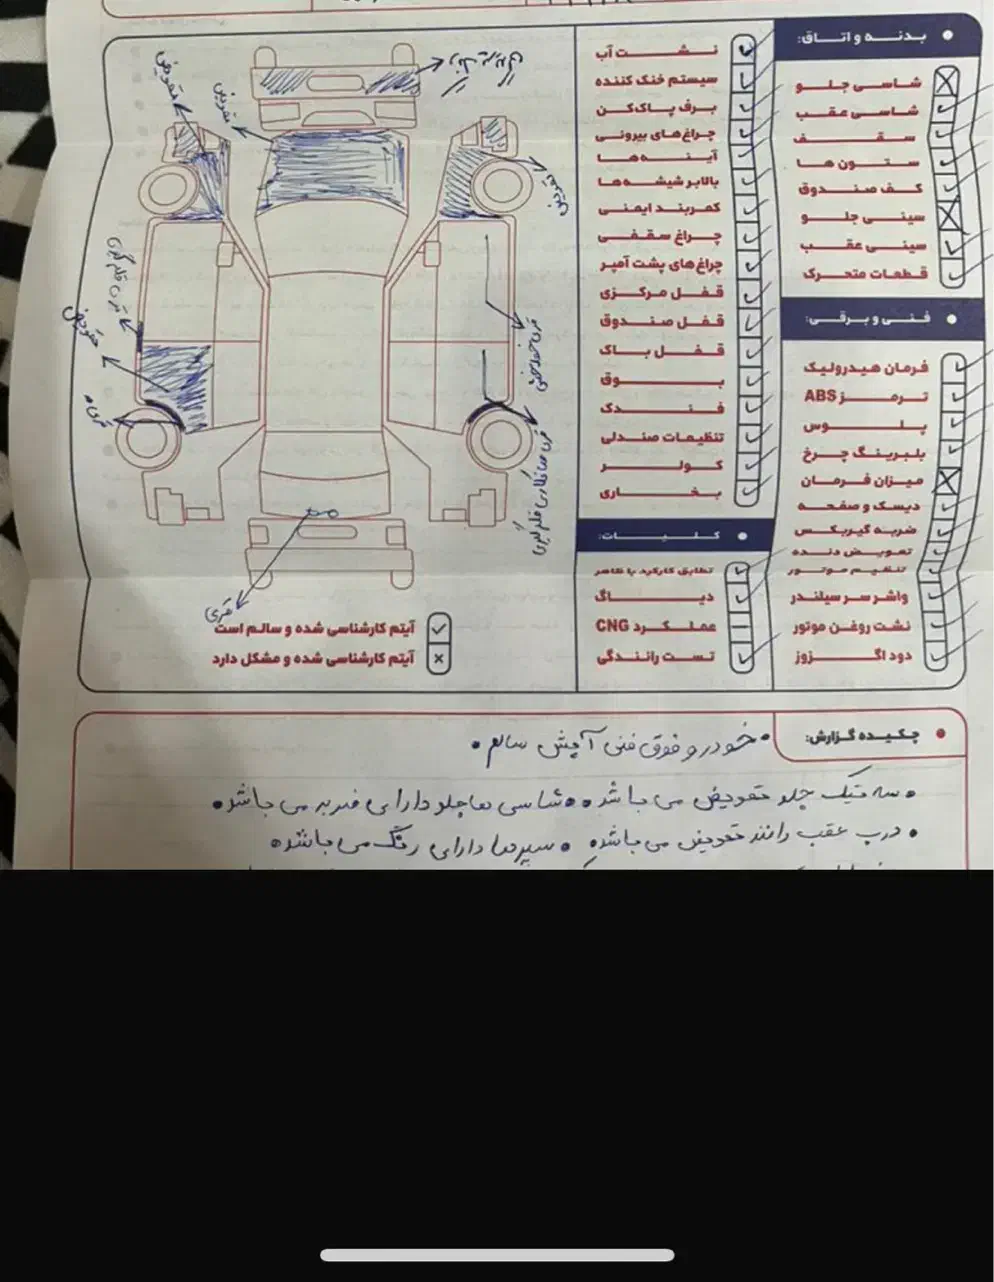 بدنه و اتاق:
شاسی جلو
شاسی عقب
سقف
ستون ها
کف صندوق
سینی جلو
سینی عقب
قطعات متحرک
فنی و برقی:
فرمان هیدرولیک
ترمز ABS
پلوس
بلبرینگ چرخ
میزان فرمان
دیسک و صفحه
ضربه گیربکس
تعویض دنده
تنظیم موتور
واشر سر سیلندر
نشت روغن موتور
دود اگزوز
نشت آب
سیستم خنک کننده
برف پاک کن
چراغ های بیرونی
آینه ها
بالابر شیشه ها
کمربند ایمنی
چراغ سقفی
چراغ های پشت آمپر
قفل مرکزی
قفل صندوق
قفل باک
بوق
فندک
تنظیمات صندلی
کولر
بخاری
کلیات:
تطابق کارکرد با ظاهر
دیاگ
عملکرد CNG
تست رانندگی
تعویض
تعویض
تعویض
تعویض
قری
آیتم کارشناسی شده و سالم است
آیتم کارشناسی شده و مشکل دارد
چکیده گزارش:
خودرو فوق فنی آپشن سالم
سه تیک جلو تعویض می باشد شاسی ها جلو دارای ضربه می باشد
درب عقب راننده تعویض می باشد سپرها دارای رنگ می باشند